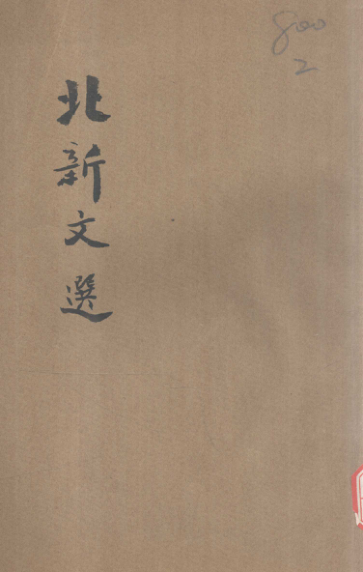 北新文選
800
2